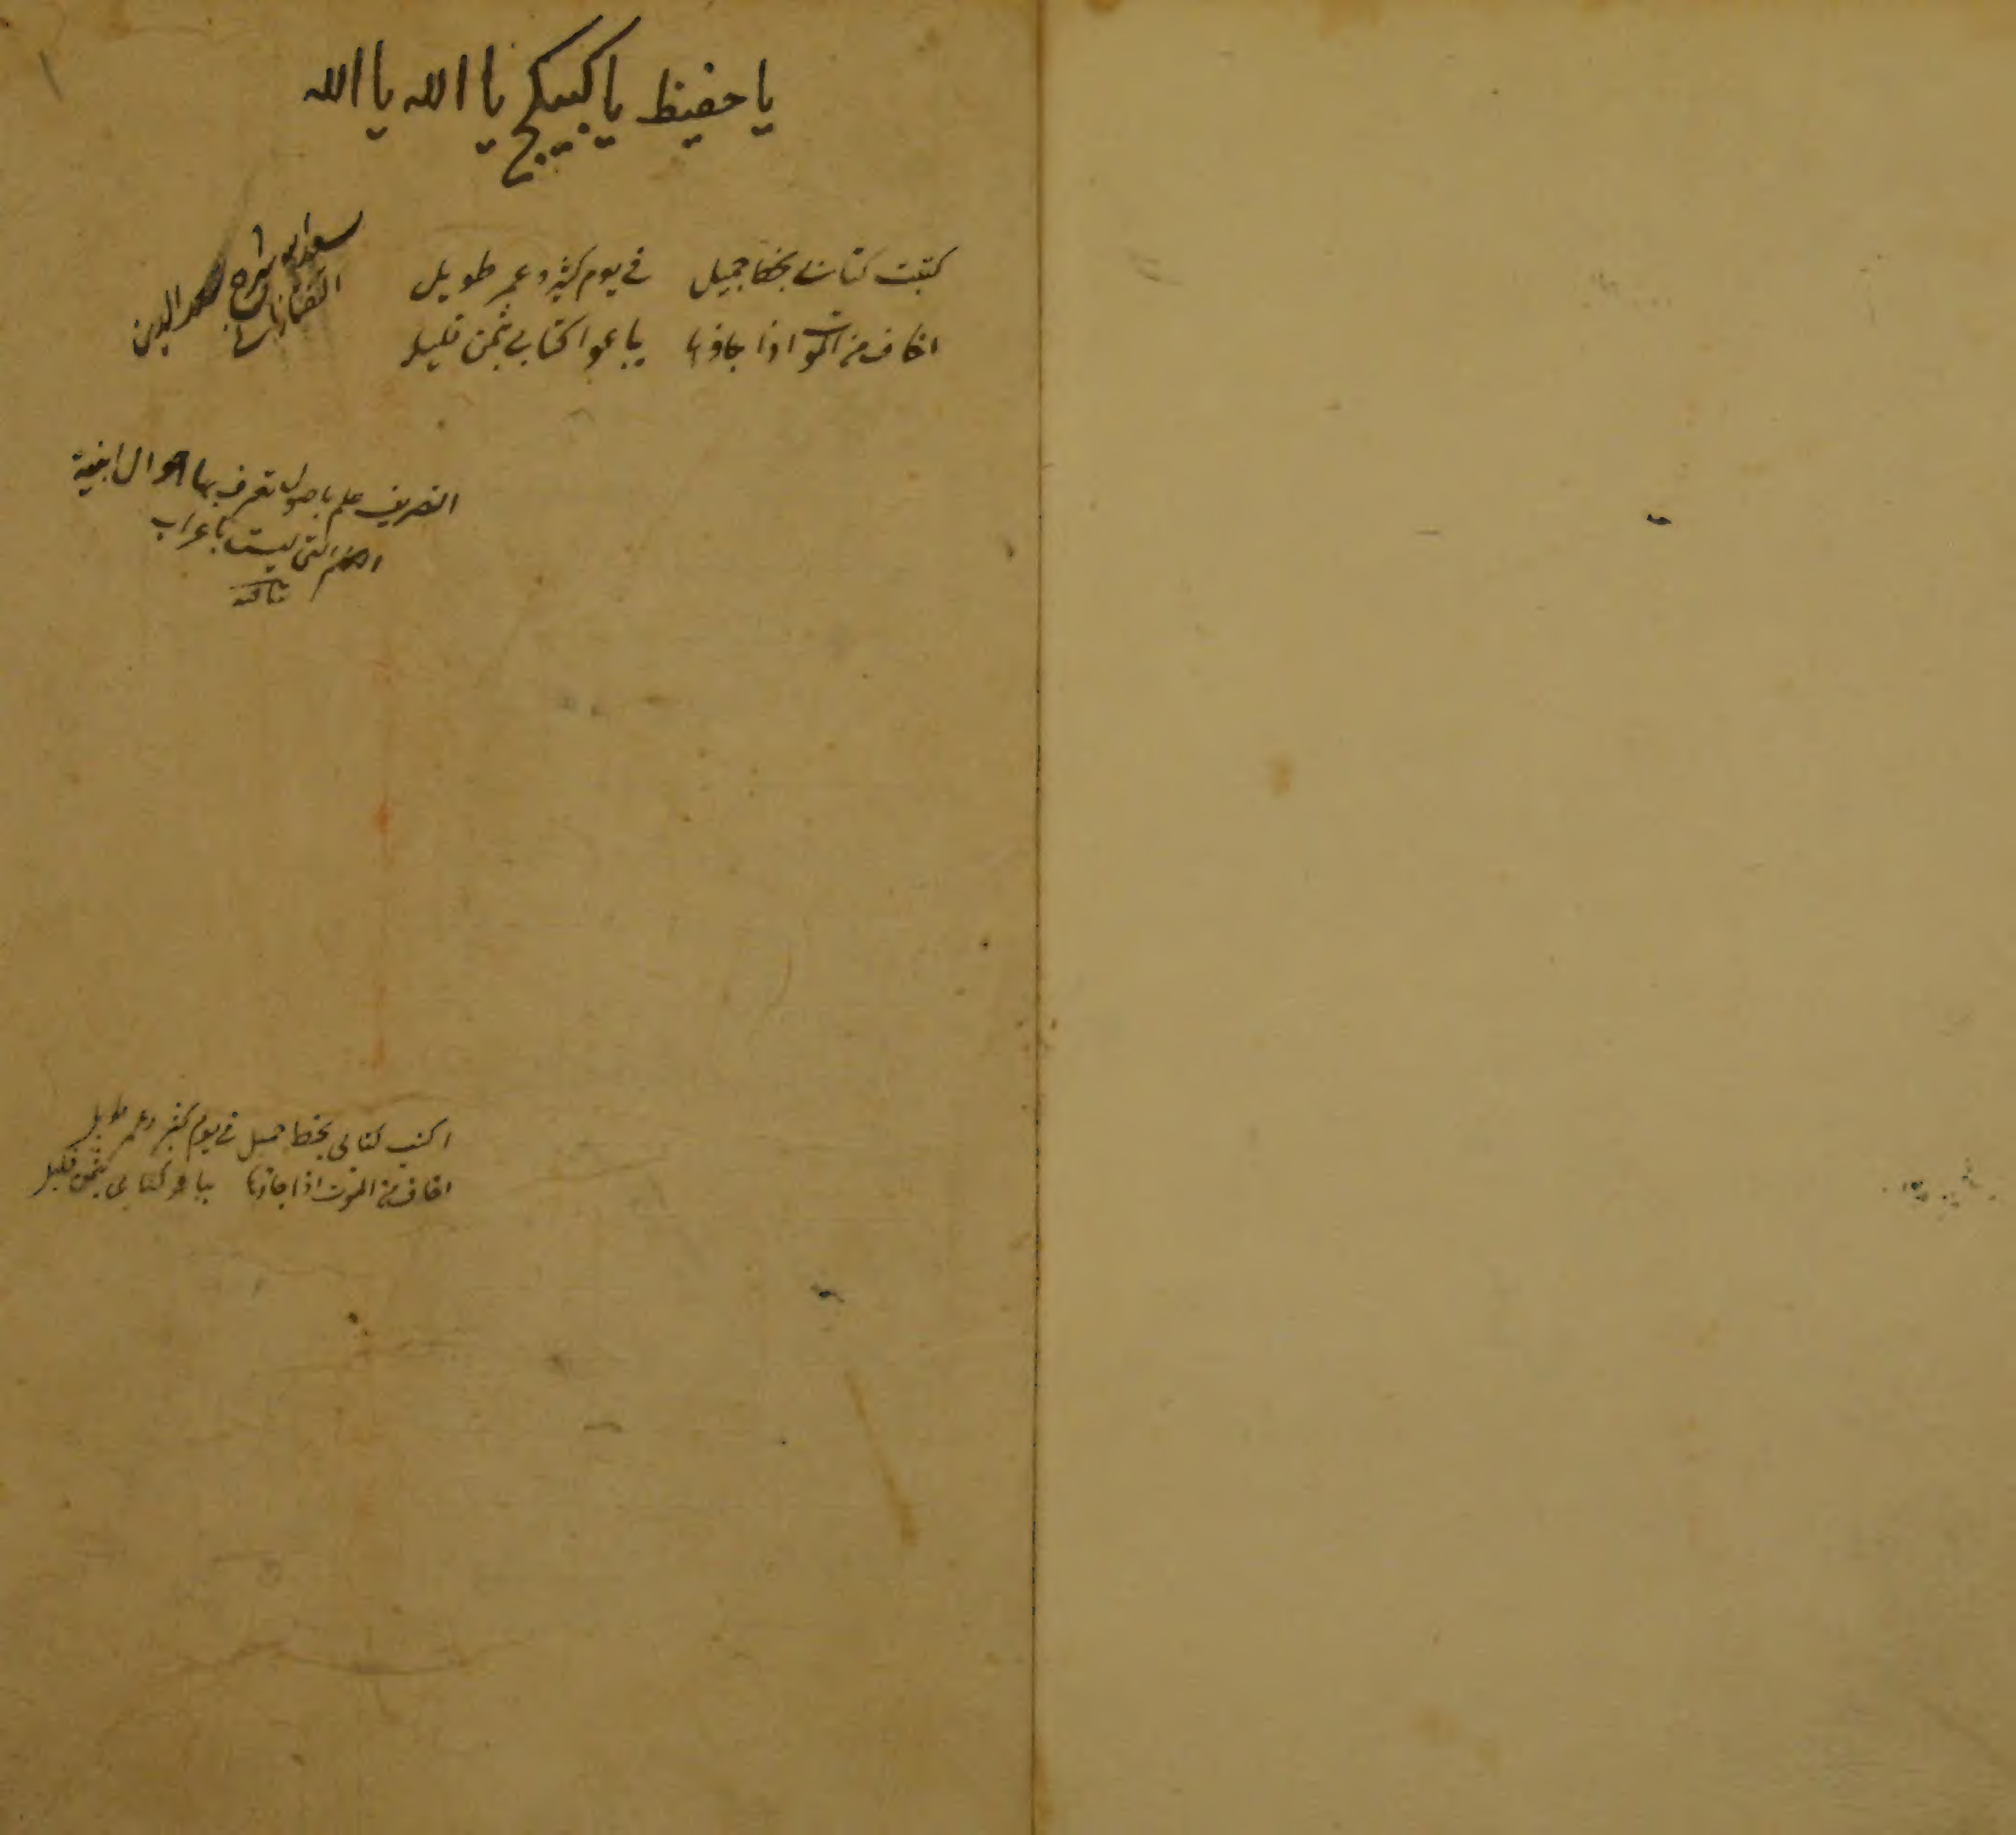 يا حفيظ يا كبيكج يا الله يا الله
كتبت كتابي بخط جميل في يوم كثير وعمر طويل
اخاف من الموت اذا جاؤنا يباعوا كتابي بثمن قليل
سعد الدين
التفتازاني
التصريف علم باصول تعرف بها احوال ابنية
الكلم التي ليست باعراب
اكتب كتابي بخط جميل في يوم كثير وعمر طويل
اخاف من الموت اذا جاؤنا يباعو كتابي بثمن قليل